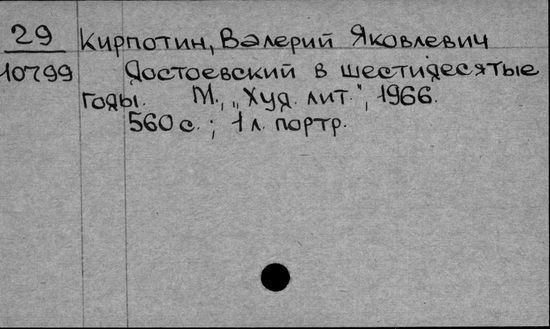 29 Кирпотин, Валерий Яковлевич
10799 Достоевский в шестидесятые
годы. М., „Худ. лит.", 1966.
560 с.; 1 л. портр.